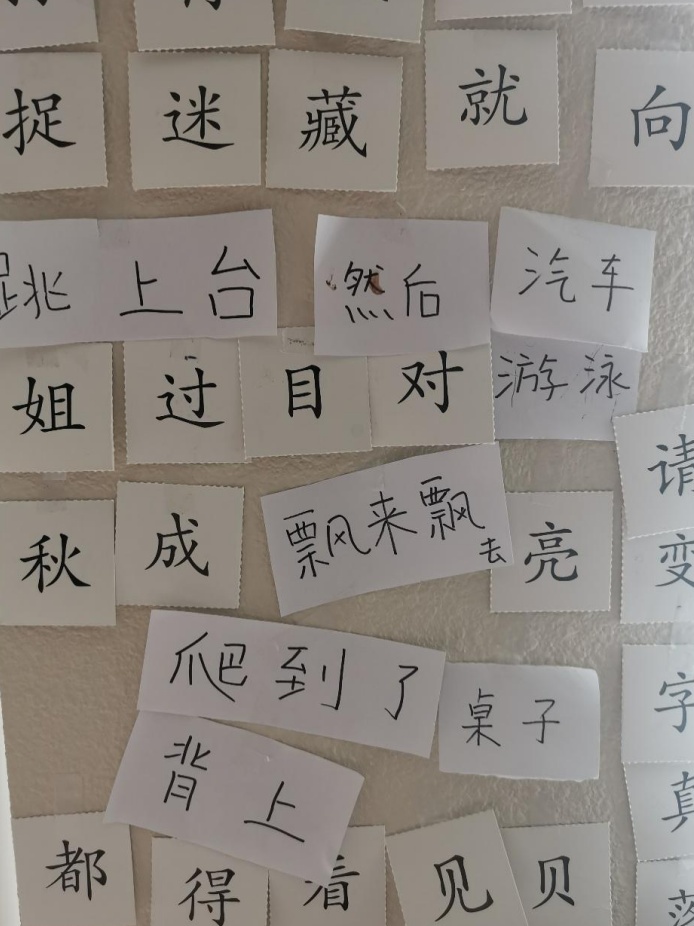 捉 迷 藏 就 向
跳上台 然后 汽车
姐 过 目 对 游泳
请
秋 成 飘风来飘去 亮 变
爬到了 桌子 字
背上 真
都 得 着 见 贝 落